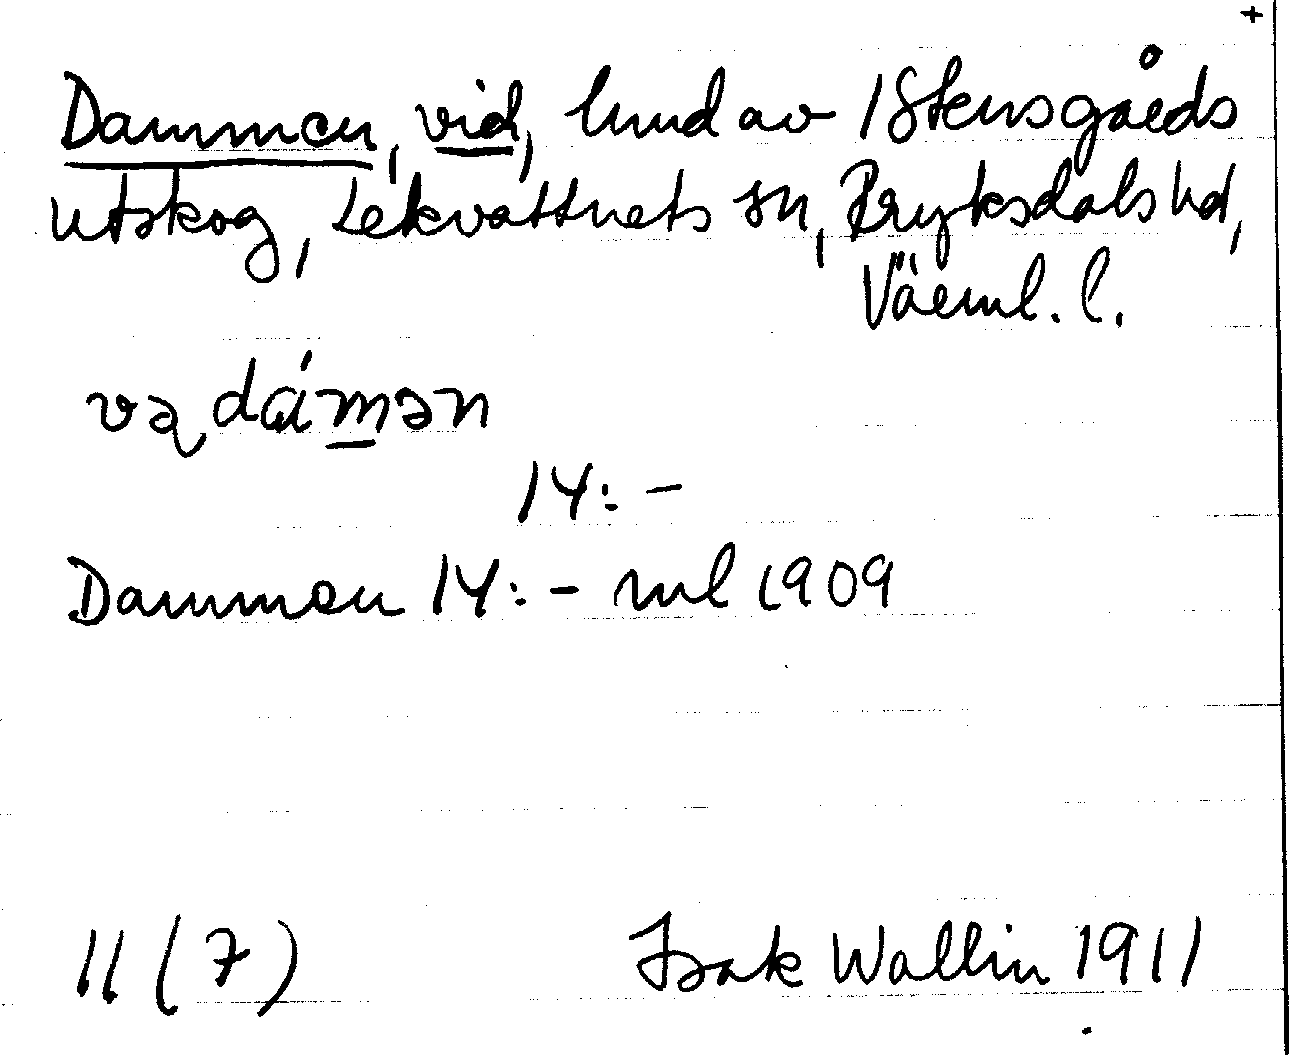 +
Dammen, vid, hmd av 1 Stensgårds
utskog, Lekvattnets sn, Fryksdals hd,
Värml. l.
və dámən
14:-
Dammen 14:- ml 1909
11 (7) Isak Wallin 1911